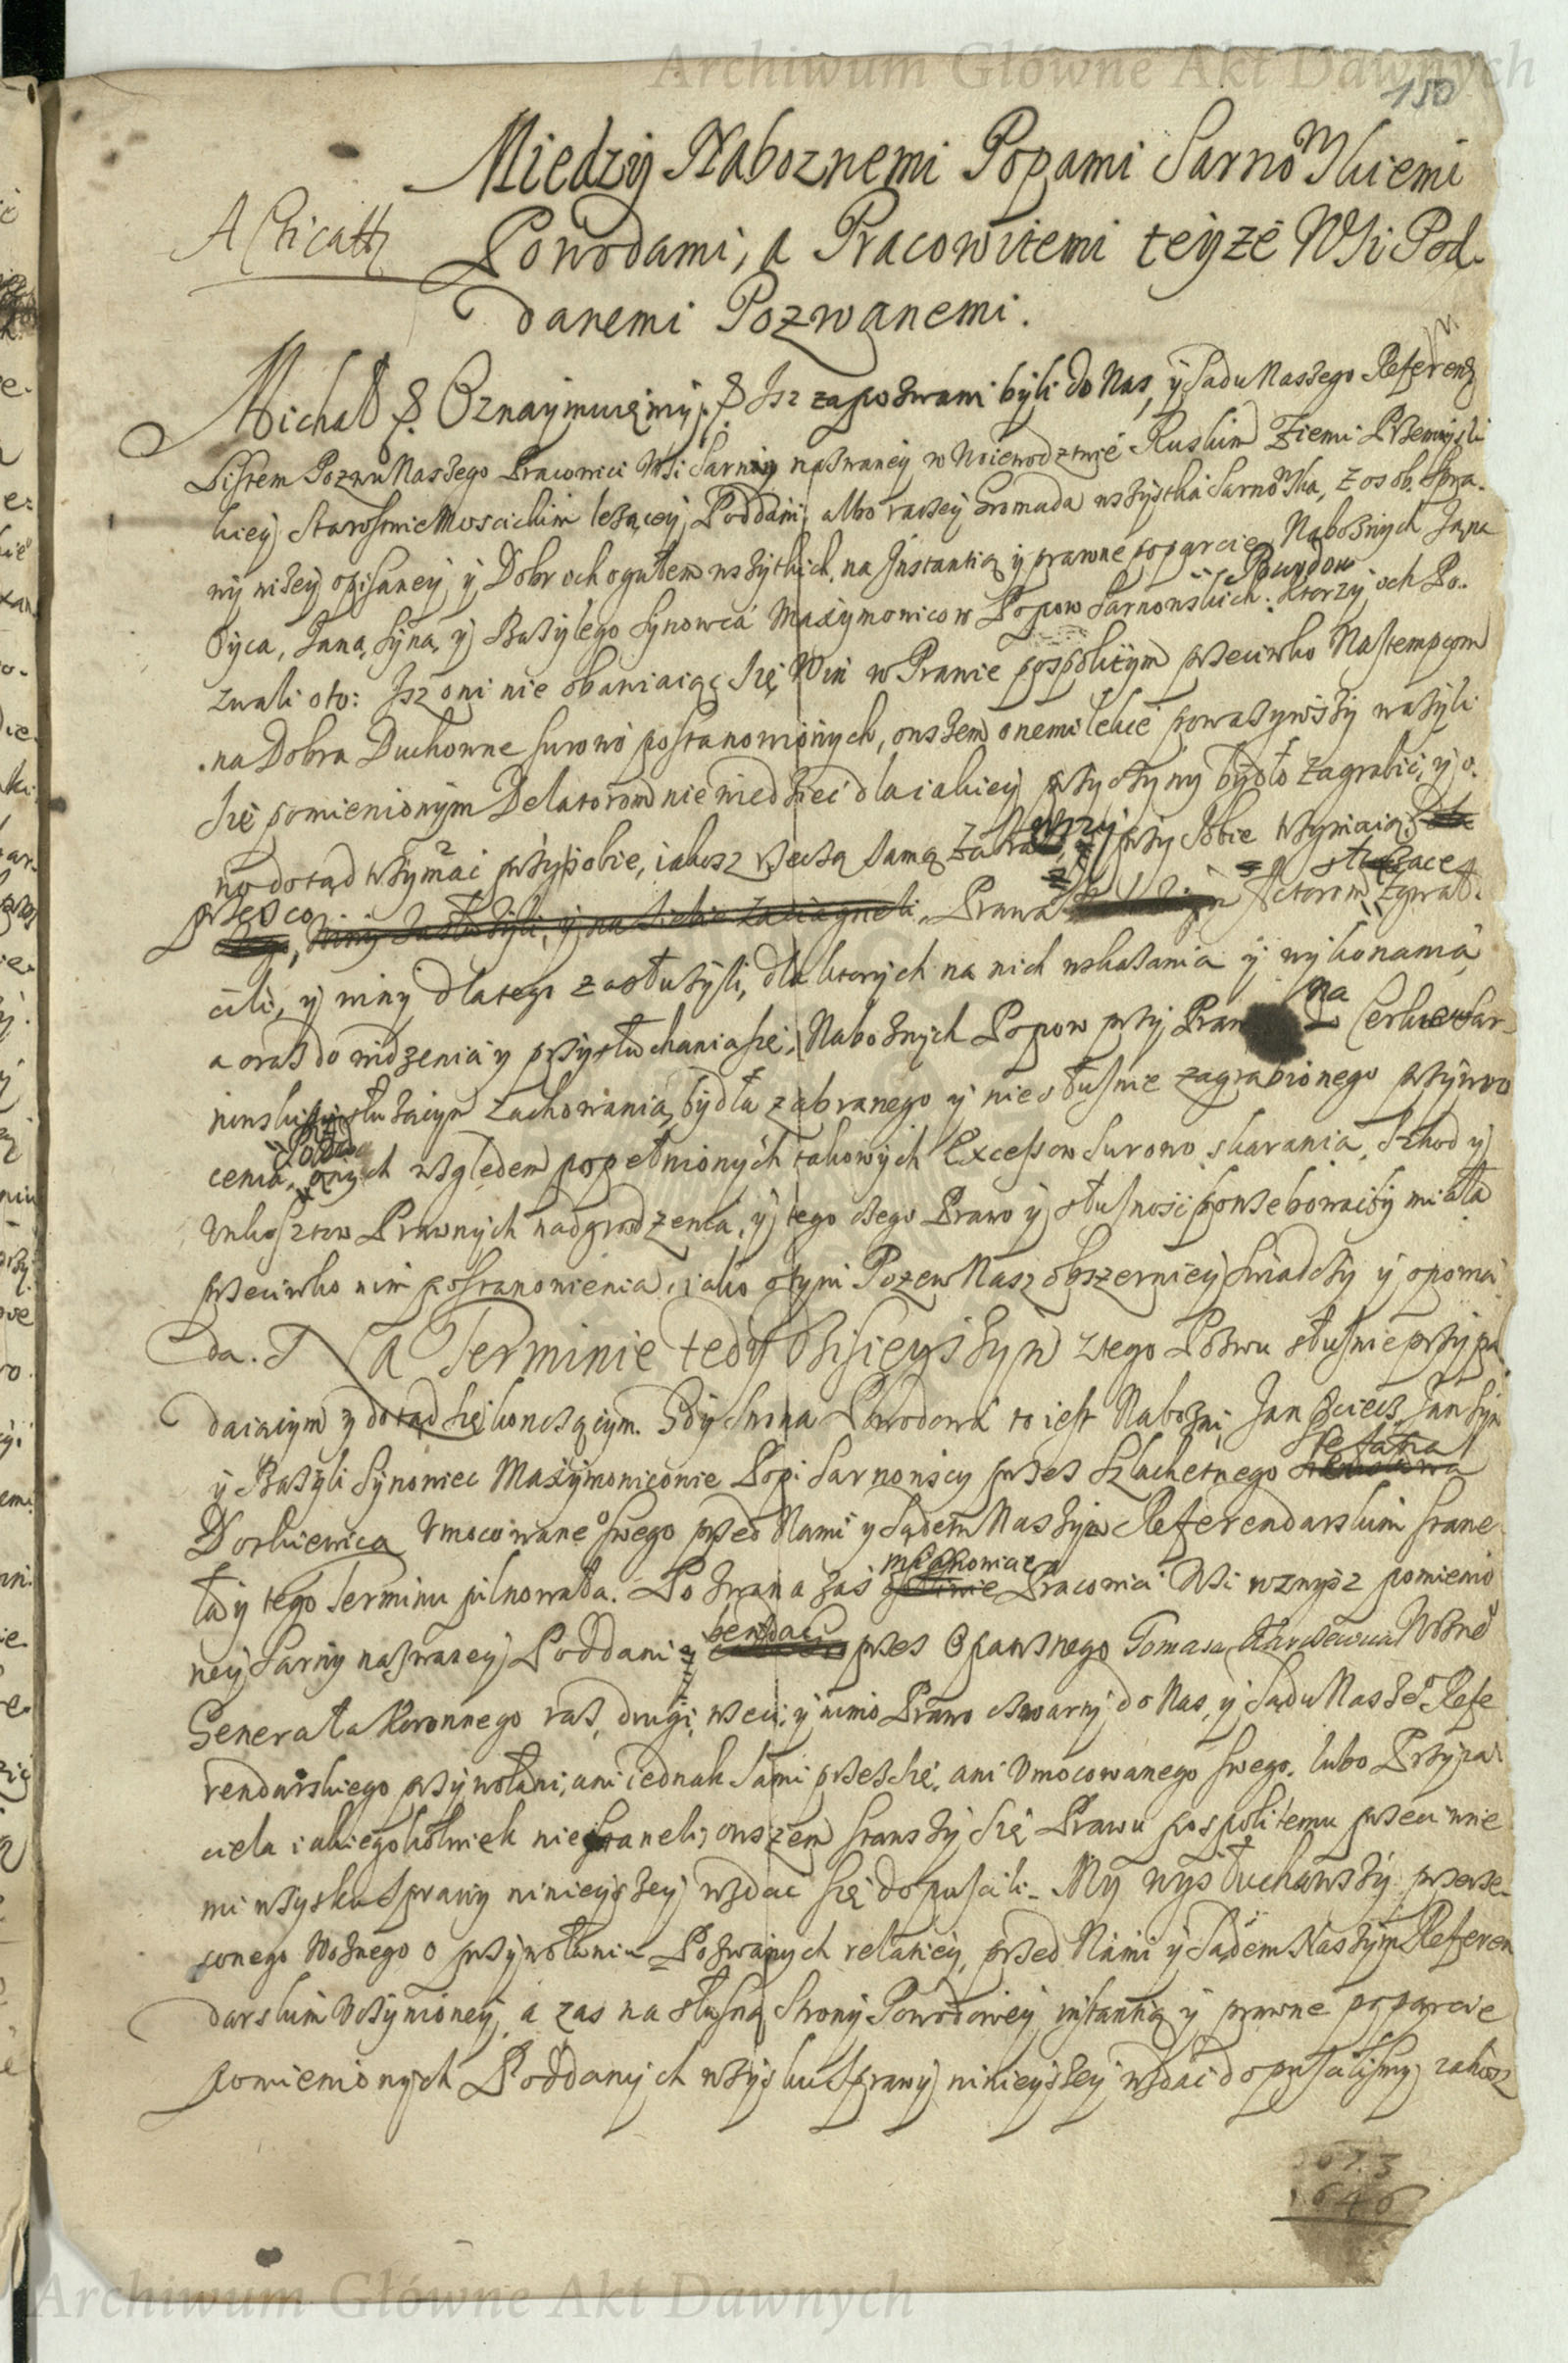 Archiwum Główne Akt Dawnych
150
Miedzÿ Naboznemi Popami Sarnowskiemi
Powodami, a Pracowitemi teÿze Wsi Pod-
danemi Pozwanemi.
Michał &. Oznaymuięmÿ. & Isz zapozwani bÿli do Nas, ÿ Sadu Naszego Referend
Listem Pozwu Naszego Pracowici Wsi Sarnÿ nazwaneÿ w Woiewodztwie Ruskim Ziemi Przemÿsl
kieÿ Starostwie Moscickim leząceÿ Poddani, albo raczeÿ Gromada wszÿstka Sarnowska, z osob. Spra-
wÿ nizeÿ opisaneÿ ÿ Dobr ich ogułem wszÿtkich, na Instantią ÿ prawne poparcie Naboznÿch Jana
Oÿca, Jana Sÿna, ÿ Bazÿlego Sÿnowca Maxÿmowicow Popow Sarnowskich: Powodow Ktorzÿ ich Po-
zwali oto: Isz oni nie obawiaiąc się Win w Prawie pospolitÿm przeciwko Nastempcom
na Dobra Duchowne surowo postanowionÿch, owszem onemi lekce powazÿwszÿ wazÿli
się pomienionÿm Delatorom niewiedziec dla iakieÿ przÿczÿnÿ bÿdło zagrabic, ÿ o-
no dotąd trzÿmac przÿ sobie, iakosz rzeczą samą przÿ sobie trzÿmaią
przesco Prawa Actorom słuzące zgwał-
cili, ÿ winÿ dlatego zasłuzÿli, dla ktorÿch na nich wskazania ÿ wÿkonania
a oraz do widzenia ÿ przÿsłuchania się, Naboznÿch Popow przÿ Praw na Cerkiew Sar-
nowską słuzącÿm zachowania, bÿdła zabranego ÿ niesłusnie zagrabionego przÿwro
cenia, onÿch względem popełnionÿch takowÿch Excessow surowo skarania, szkod ÿ
Unkosztow Prawnÿch nadgrodzenia, ÿ tego czego Prawo ÿ słusnosc potrzebowacbÿ miała
przeciwko nim postanowienia, iako o tÿm Pozew Nasz obszernieÿ swiadczÿ ÿ opowia
da. Na Terminie tedÿ dzisieÿszÿm z tego Pozwu słusnie przÿpa
daiącÿm ÿ dotąd się konczącÿm. Gdÿ Strona Powodowa to iest Nabozni Jan Ociec, Jan Sÿn
ÿ Bazÿli Sÿnowiec Maxÿmowicowie Popi Sarnowscÿ przes Szlachetnego Stefana
Dorkiewica Umocowane° swego przed Nami ÿ Sądem Naszÿm Referendarskim stane
ła ÿ tego Terminu pilnowała. Pozwana zas mianowicie Pracowici Wsi wzwÿsz pomienio
neÿ Sarnÿ nazwaneÿ Poddani bendąc przes Opatrznego Tomasza Wozne°
Generała Koronnego raz, drugi, trzeci, ÿ mimo Prawo czwartÿ do Nas, ÿ Sądu Nasze° Refe
rendarskiego przÿwołani, ani iednak sami przes się, ani Umocowanego swego, lubo Przÿia-
ciela iakiegokolwiek niestaneli, owszem stawszÿ się Prawu pospolitemu przeciwne
mi wzÿsku Sprawÿ ninieÿszeÿ wzdac się dopuscili. Mÿ wÿsłuchawszÿ przerze-
conego Woznego o przÿwołaniu Pozwanÿch relacieÿ, przed Nami ÿ Sądem Naszÿm Referen
darskim uczÿnioneÿ, a zas na słusną Stronÿ Powodoweÿ instantią ÿ prawne poparcie
pomienionÿch Poddanÿch wzÿsku Sprawÿ ninieÿszeÿ wzdac dopuscilismÿ, iakosz
1673
1646
Archiwum Główne Akt Dawnych